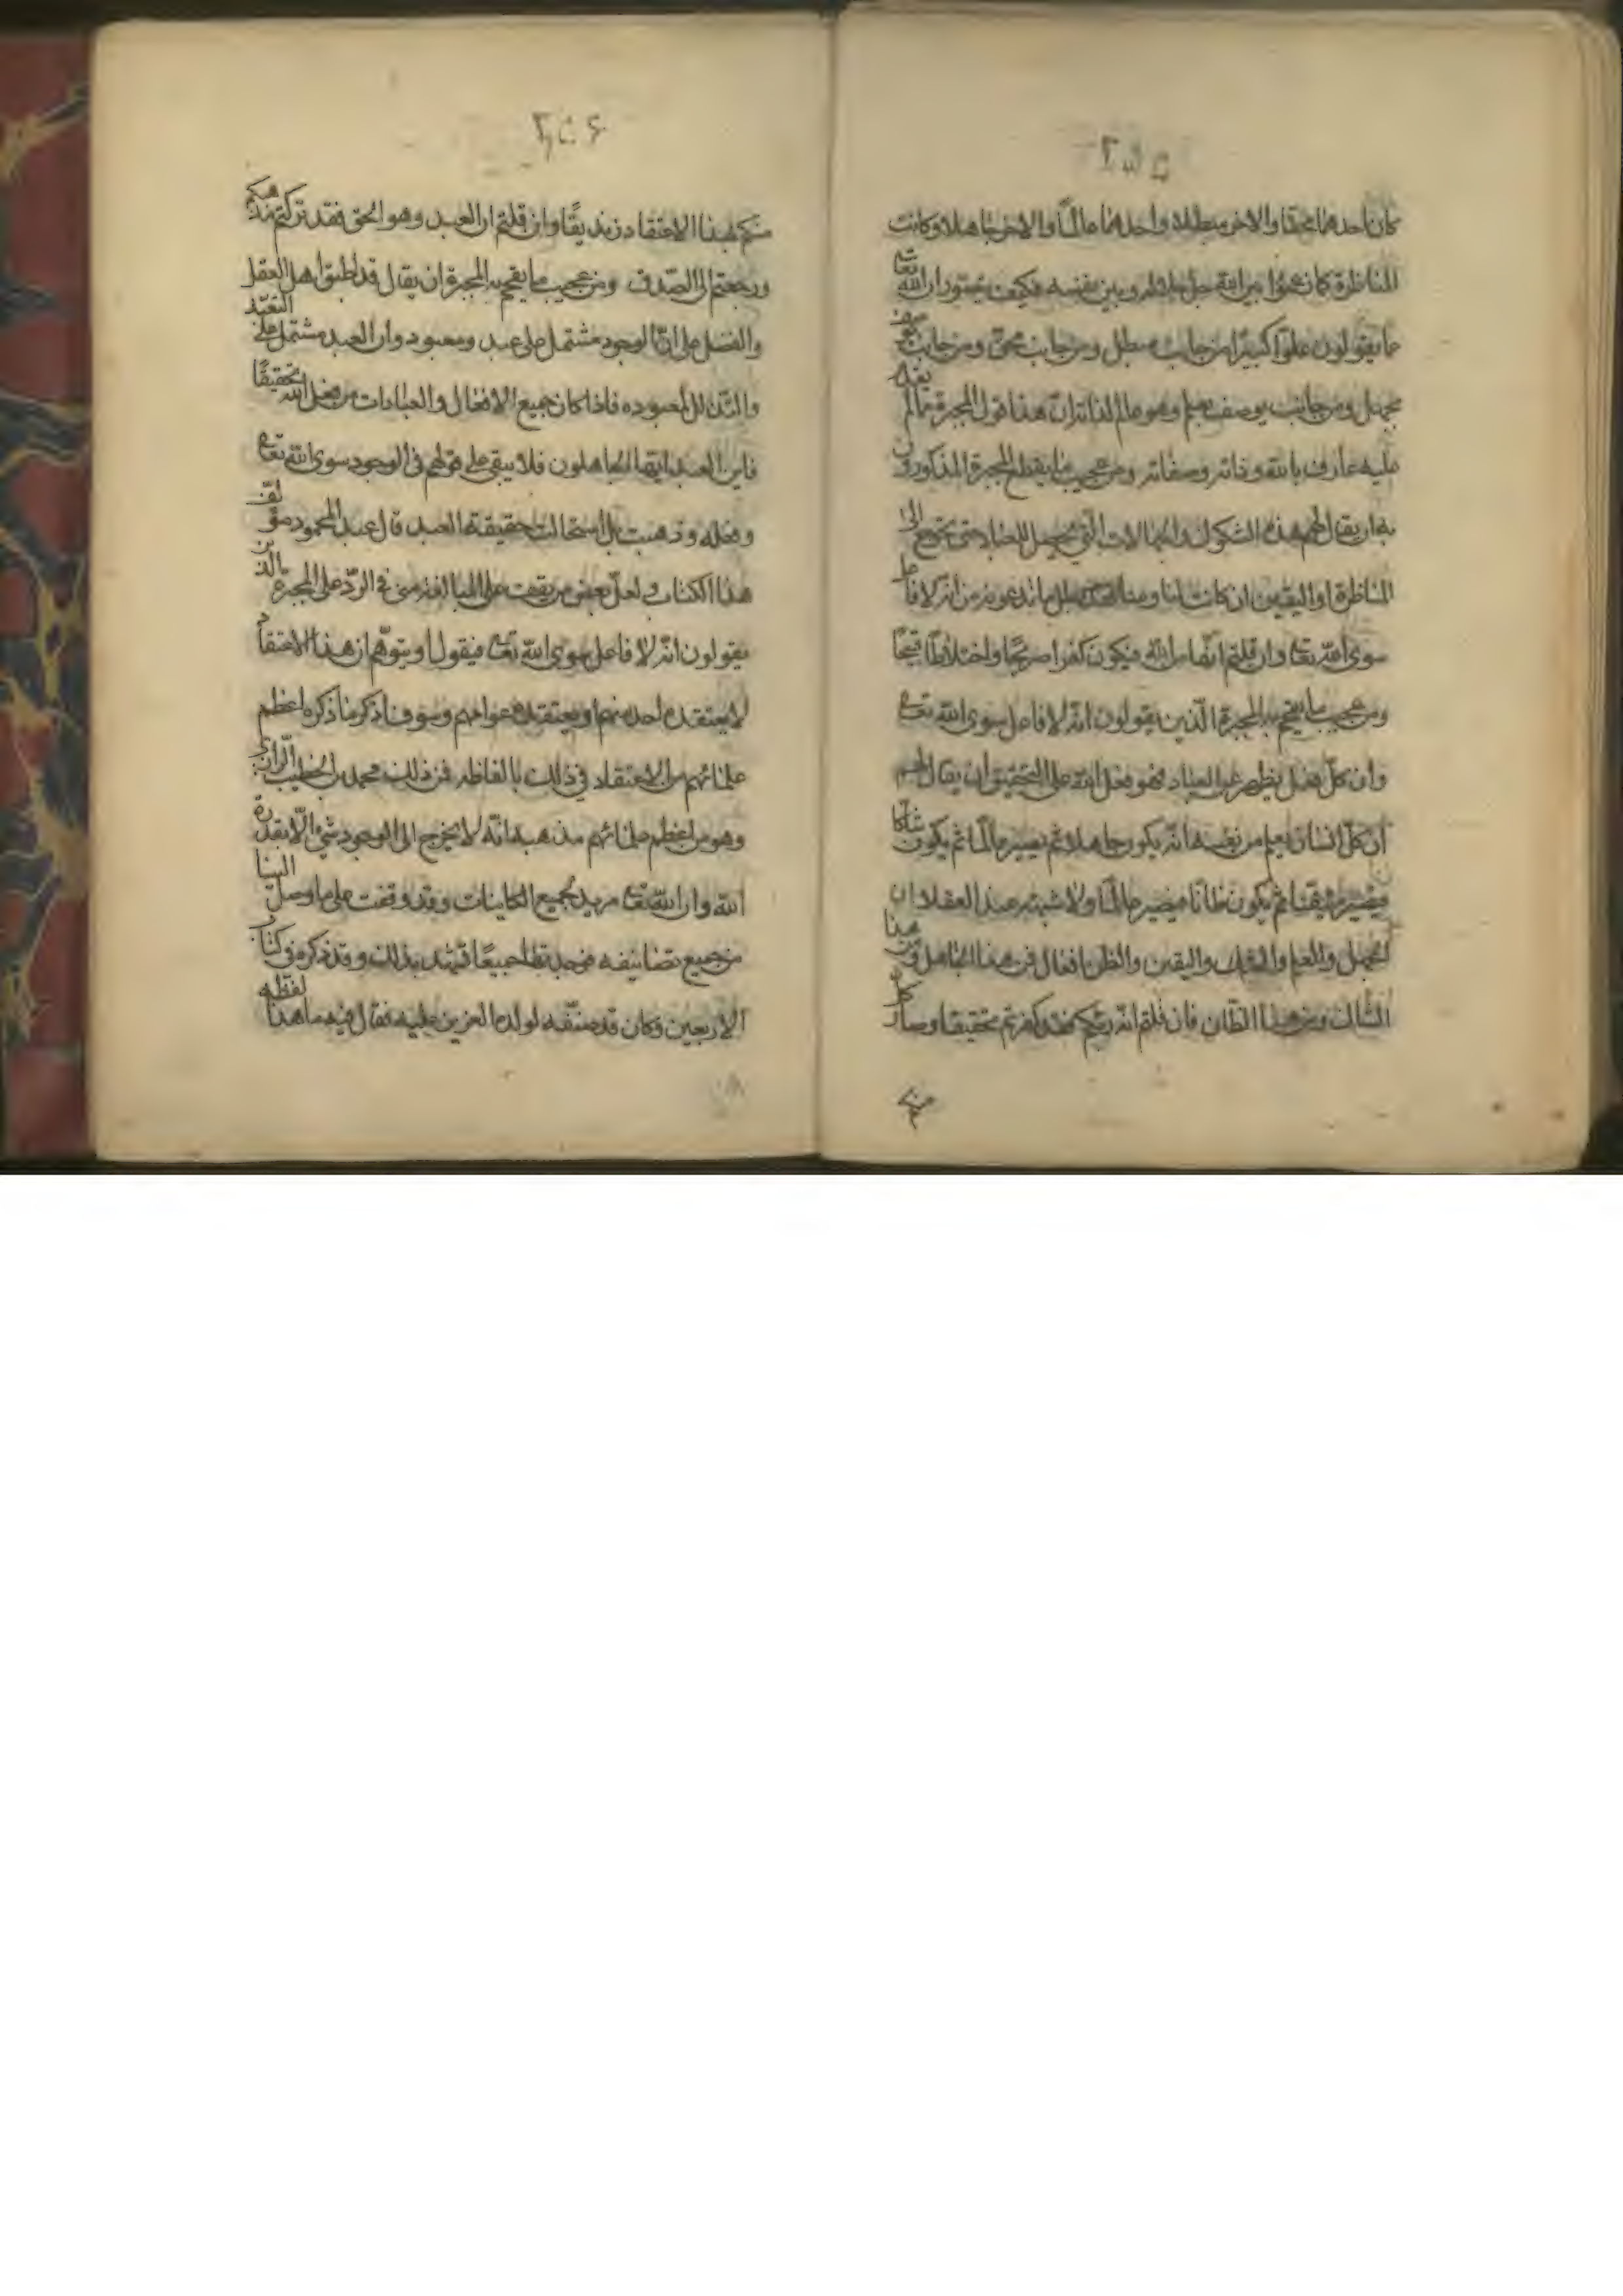 كان احدهما محقا والاخر مبطلا واحدهما عالمًا والاخر جاهلا وكانت
المناظرة كما زعموا من الله جل جلاله وبين نفسه فكيف يتصور ان الله تعالى
عما يقولون علوّا كبيرًا من جانب مبطل ومن جانب محق ومن جانب يوصف
بجهل ومن جانب يوصف بعلم وهو عالم لذاته ان هذا قول المجبرة ما لم يقله
عليه عارف بالله وذاته وصفاته ومن عجيب ما يقطع المجبرة المذكورون
به ان يقال لهم هذه الشكوك والجهالات التي تحصل للعباد حتى يحتاج الى
المناظرة او اليقين ان كانت منا ومنكم فقد بطل ما تدعونه من انه لا فاعل
سوى الله تعالى وان قلتم انها من الله فيكون كفرا صريحًا واختلاطًا قبيحًا
ومن عجيب ما يفحم به المجبرة الّذين يقولون انّه لا فاعل سوى الله تعالى
وان كلّ فعل يظهر عن العباد فهو فعل الله على التحقيق ان يقال لهم
ان كلّ انسان يعلم من نفسه انّه يكون جاهلا ثم يصير عالمًا ثم يكون شاكا
فيصير متيقنا ثم يكون ظانًا فيصير عالمًا ولا شبهة عند العقلاء ان
الجهل والعلم والشك واليقين والظن افعال فمن هذا الجاهل ومن هذا
الشاك ومن هذا الظان فان قلتم انّه ربكم فقد كفرتم تحقيقا وصار كل
منكم
منكم بهذا الاعتقاد زنديقًا وان قلتم ان العبد وهو الحق فقد تركتم مذهبكم
ورجعتم الى الصّدق ومن عجيب ما يفحم به المجبرة ان يقال قد اطبق اهل العقل
والفضل على انّ الوجود مشتمل على عبد ومعبود وان العبد مشتمل على التعبّد
والتذلل لمعبوده فاذا كان جميع الافعال والعبادات من فعل الله تحقيقًا
فاين العبد ايها الجاهلون فلا يبقى على قولهم في الوجود سوى الله تعالى
وفعله وذهبت بل استحالت حقيقة العبد قال عبد المحمود مؤلف
هذا الكتاب ولعل بعض من يقف على المبالغة منى في الردّ على المجبرة الذين
يقولون انّه لا فاعل سوى الله تعالى فيقول او يتوهّم ان هذا الاعتقاد
لا يعتقده احد منهم او يعتقده عوامهم وسوف اذكر ما ذكره اعظم
علمائهم من الاعتقاد في ذلك بالفاظه فمن ذلك محمد بن الخطيب الرازى
وهو من اعظم علمائهم مذهبه انّه لا يخرج الى الوجود شئ الّا بقدرة
الله وان الله تعالى مريد لجميع الكاينات وقد وقفت على ما وصل الينا
من جميع تصانيفه فوجدتها جميعًا تشهد بذلك وقد ذكره في كتاب
الاربعين وكان قد صنّفه لولده العزيز عليه فقال فيه ما هذا لفظه